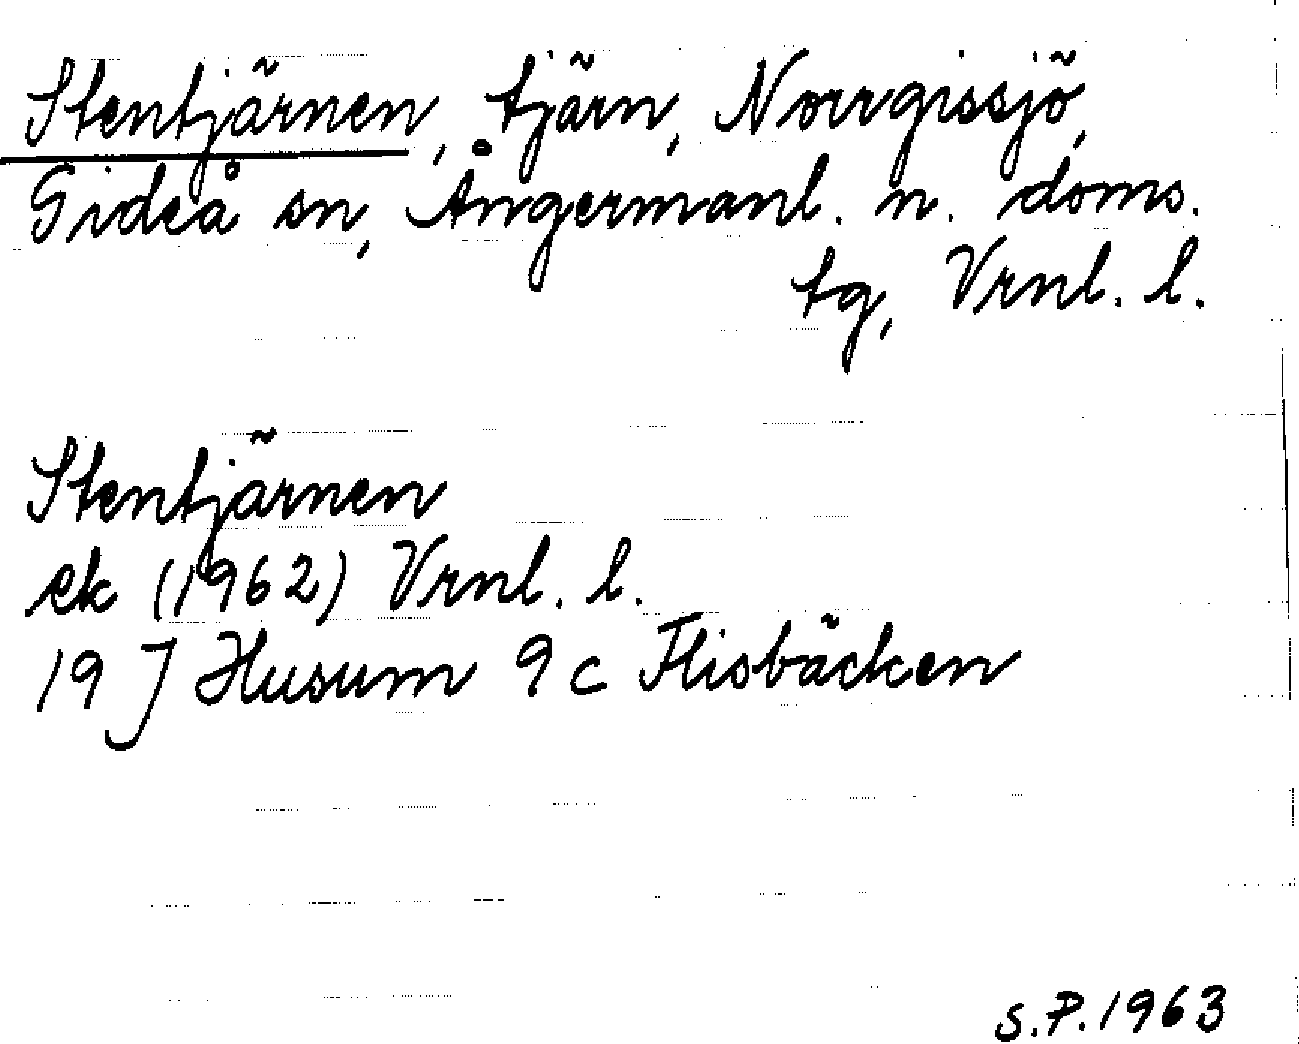 Stentjärnen, tjärn, Norrgissjö,
Gideå sn, Ångermanl. n. doms.
tg, Vrnl. l.
Stentjärnen
ek (1962) Vrnl. l.
19 J Husum 9 c Flisbäcken
S.P. 1963